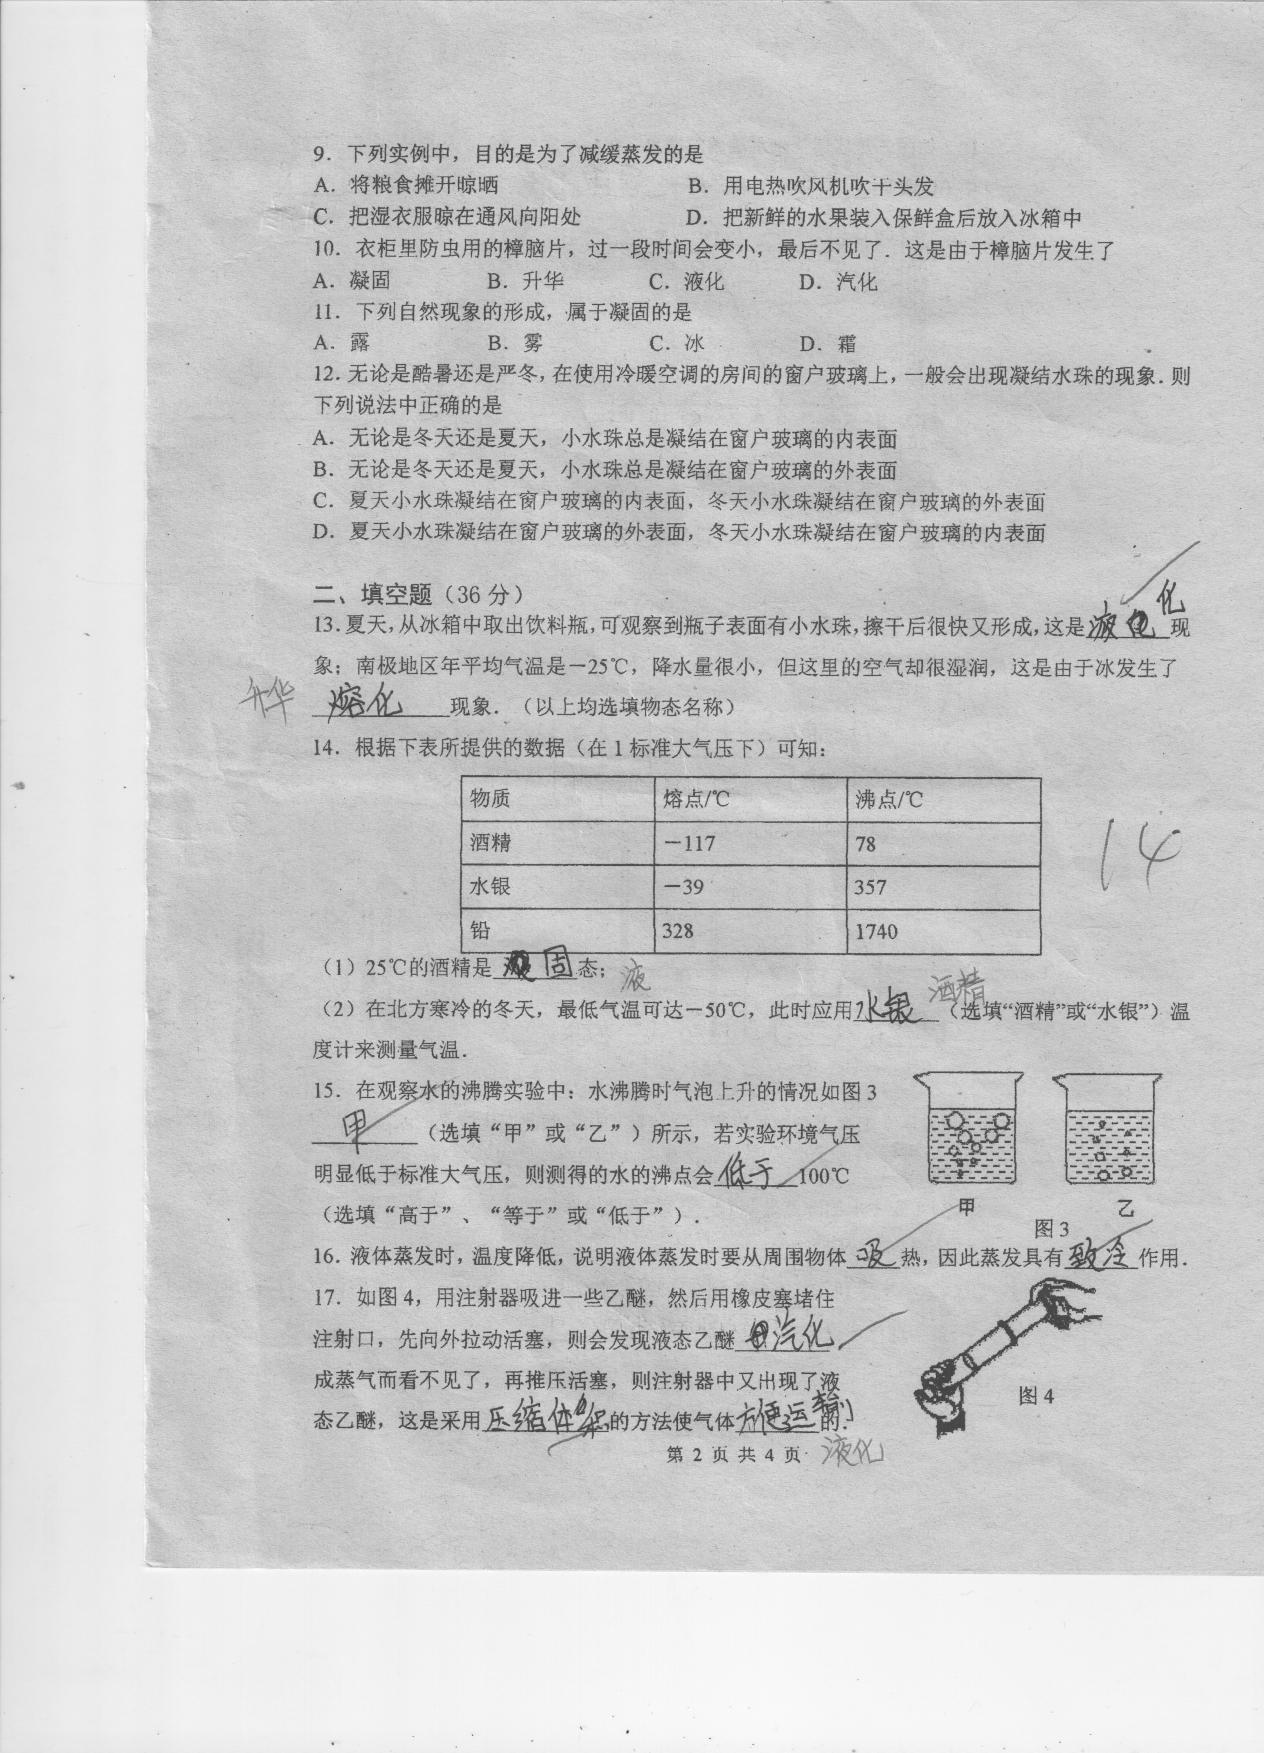 9．下列实例中，目的是为了减缓蒸发的是
A．将粮食摊开晾晒 B．用电热吹风机吹干头发
C．把湿衣服晾在通风向阳处 D．把新鲜的水果装入保鲜盒后放入冰箱中
10．衣柜里防虫用的樟脑片，过一段时间会变小，最后不见了．这是由于樟脑片发生了
A．凝固 B．升华 C．液化 D．汽化
11．下列自然现象的形成，属于凝固的是
A．露 B．雾 C．冰 D．霜
12．无论是酷暑还是严冬，在使用冷暖空调的房间的窗户玻璃上，一般会出现凝结水珠的现象．则
下列说法中正确的是
A．无论是冬天还是夏天，小水珠总是凝结在窗户玻璃的内表面
B．无论是冬天还是夏天，小水珠总是凝结在窗户玻璃的外表面
C．夏天小水珠凝结在窗户玻璃的内表面，冬天小水珠凝结在窗户玻璃的外表面
D．夏天小水珠凝结在窗户玻璃的外表面，冬天小水珠凝结在窗户玻璃的内表面
二、填空题（36 分）
13．夏天，从冰箱中取出饮料瓶，可观察到瓶子表面有小水珠，擦干后很快又形成，这是液化现
象；南极地区年平均气温是－25℃，降水量很小，但这里的空气却很湿润，这是由于冰发生了
升华 熔化现象．（以上均选填物态名称）
14．根据下表所提供的数据（在 1 标准大气压下）可知：
物质 熔点/℃ 沸点/℃
酒精 －117 78
水银 －39 357
铅 328 1740
14
（1）25℃的酒精是固态；液
（2）在北方寒冷的冬天，最低气温可达－50℃，此时应用水银 酒精（选填“酒精”或“水银”）温
度计来测量气温．
15．在观察水的沸腾实验中：水沸腾时气泡上升的情况如图 3
甲（选填“甲”或“乙”）所示，若实验环境气压
明显低于标准大气压，则测得的水的沸点会低于100℃
（选填“高于”、“等于”或“低于”）．
甲 乙
图 3
16．液体蒸发时，温度降低，说明液体蒸发时要从周围物体吸热，因此蒸发具有致冷作用．
17．如图 4，用注射器吸进一些乙醚，然后用橡皮塞堵住
注射口，先向外拉动活塞，则会发现液态乙醚汽化
成蒸气而看不见了，再推压活塞，则注射器中又出现了液
态乙醚，这是采用压缩体积的方法使气体方便运输的．
图 4
第 2 页 共 4 页
液化